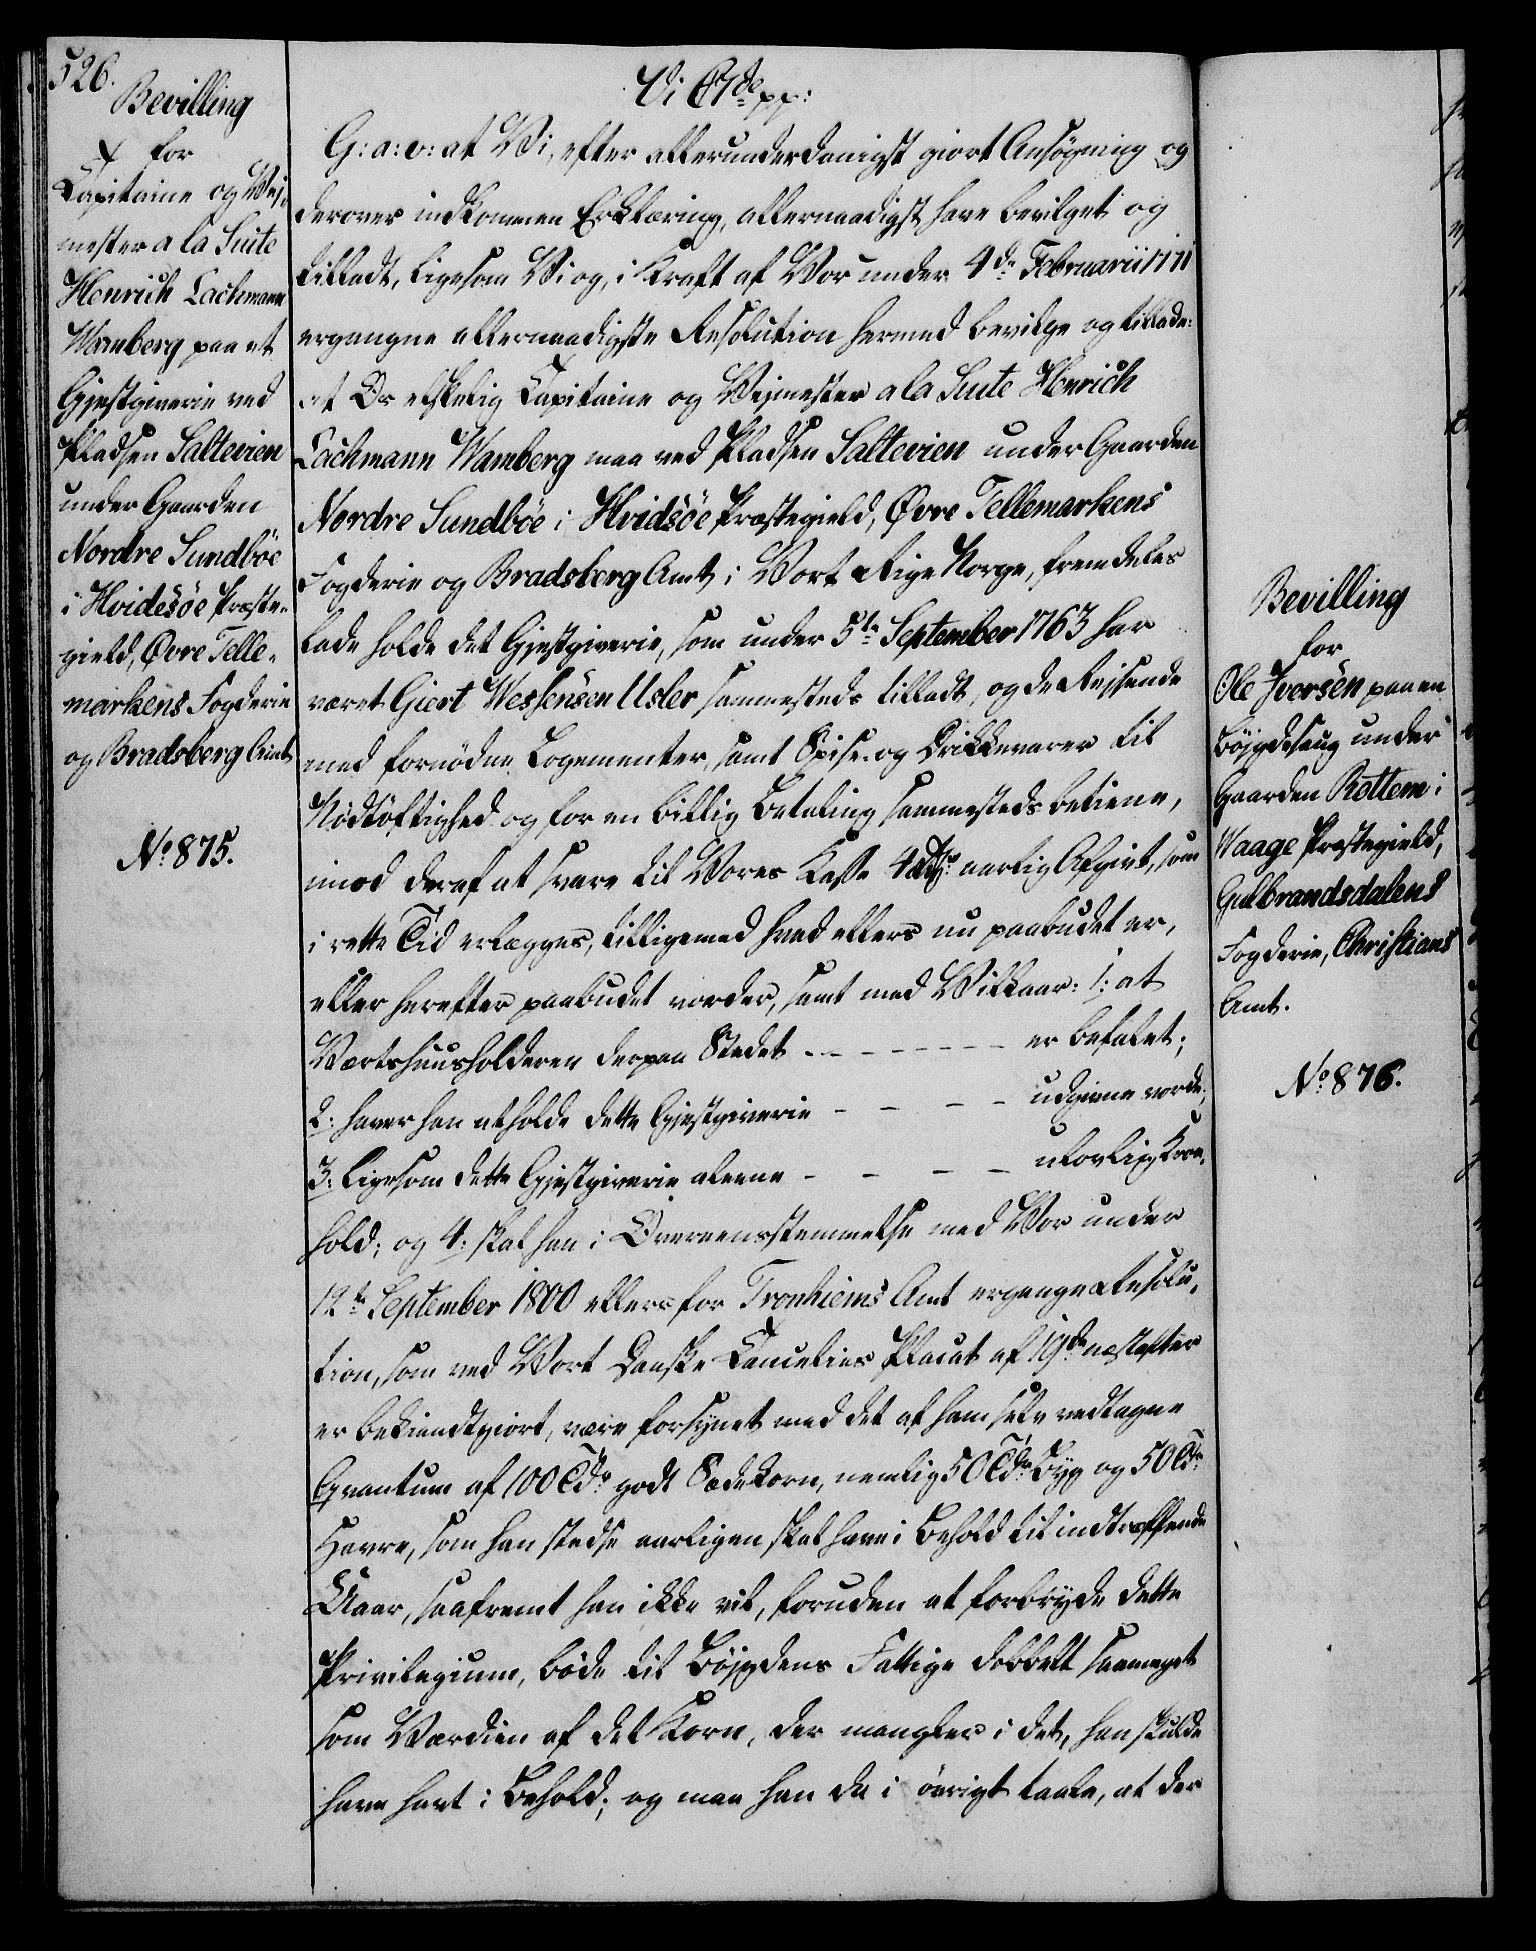 526.
Bevilling
for
Capitaine og Vej-
mester a la Suite
Henrich Lachmann
Wamberg paa et
Gjestgiverie ved
Pladsen Saltevien
under Gaarden
Nordre Sundböe
i Hvidesöe Præste-
gield, Øvre Telle-
markens Fogderie
og Bradsberg Amt
No 875.
Vi C 7de pp:
G: a: v: at Vi, efter allerunderdanigst giort Ansøgning og
derover indkommen Erklæring, allernaadigst have bevilget og
tilladt, ligesom Vi og, i Kraft af Vor under 4de Februarii
ergangne allernaadigste Resolution hermed bevilge og tillade:
at Os elskelig Capitaine og Vejmester a la Suite Henrich
Lachmann Wamberg maa ved Pladsen Saltevien under Gaarden
Nordre Sundböe i Hvidsöe Præstegield, Øvre Tellemarkens
Fogderie og Bradsberg Amt i Vort Rige Norge, fremdeles
lade holde det Gjestgiverie, som under 5te September 1763 har
været Giert Wessensen Usler sammesteds tilladt, og de Rejsende
med fornödne Logementer, samt Spise- og Drikkevarer til
Nödtöftighed og for en billig Betaling sammesteds betiene,
imod deraf at svare til Vores Kasse 4 Rdr aarlig Afgivt, som
i rette Tid erlægges, tilligemed hvad ellers nu paabudet er,
eller herefter paabudet vorder, samt med Vilkaar: 1: at
Værtshuusholderen derpaa Stedet - - - - - - - er befalet;
2: haver han at holde dette Gjestgiverie - - - - udgivne vorde;
3: ligesom dette Gjestgiverie alene - - - - ulovlig Kroe-
hold; og 4: skal han i Overeensstemmelse med Vor under
12te September 1800 ellers for Tronhiems Amt ergangne Resolu-
tion, som ved Vort Danske Cancelies Placat af 19de næstefter
er bekiendtgiort, være forsynet med det af ham selv vedtagne
Qvantum af 100 Tdr godt Sædekorn, nemlig 50 Tdr Byg og 50 Tdr
Havre, som han stedse aarligen skal have i Behold til indtræffende
Uaar, saafremt han ikke vil, foruden at forbryde dette
Privilegium, böde til Böjgdens Fattige dobbelt saameget
som Værdien af det Korn, der mangler i det, han skulde
have havt i Behold; og maa han da i övrigt taale, at der
Bevilling
for
Ole Iversen paa en
Böjgdesaug under
Gaarden Rottem i
Waage Præstegield,
Gulbrandsdalens
Fogderie, Christians
Amt.
No 876.